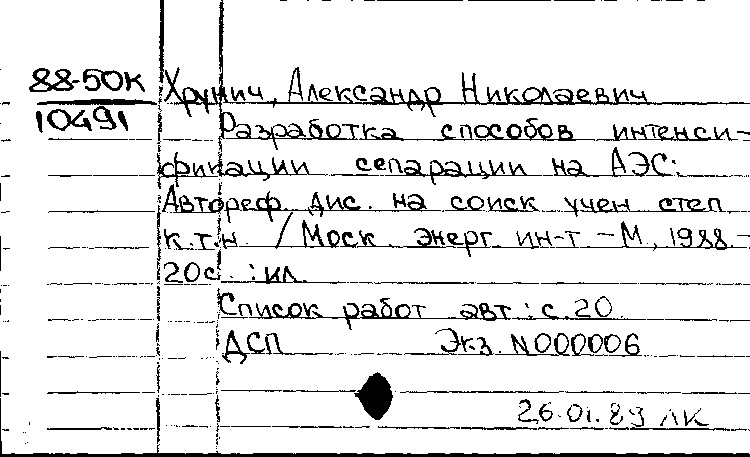 88-50К
10491
Хрумич, Александр Николаевич
Разработка способов интенси-
фикации сепарации на АЭС:
Автореф. дис. на соиск учен степ
к.т.н. / Моск. энерг. ин-т. - М, 1988.-
20с. : ил.
Список работ авт.: с. 20
ДСП Экз. N000006
26.01.89 ЛК